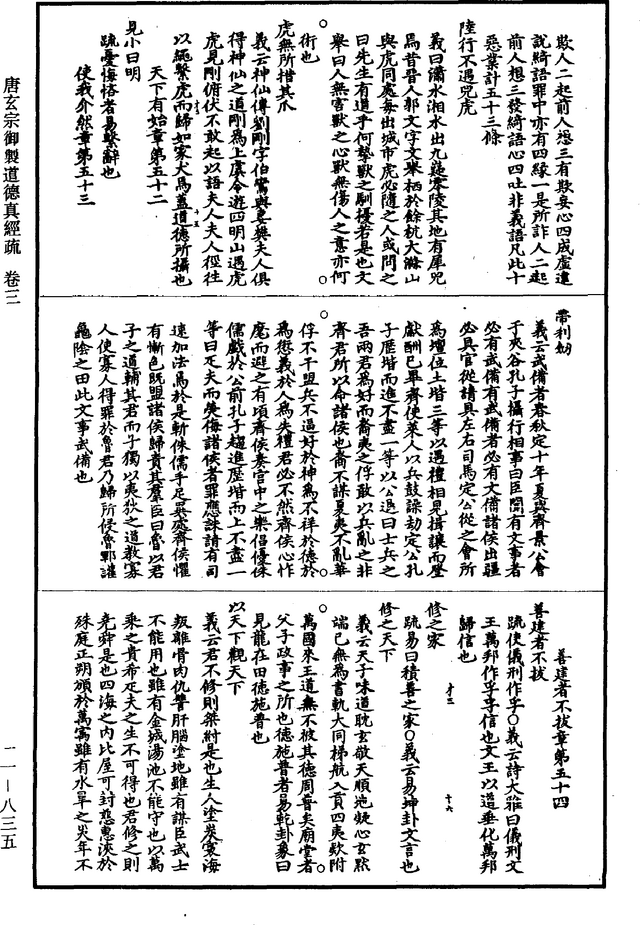 欺人二起前人想三有欺妄心四成虛違
說綺語罪中亦有四緣一是所詐人二起
前人想三發綺語心四吐非義語凡此十
惡業計五十三條
陸行不遇兕虎
義曰瀟水湘水出九疑零陵其地有犀兕
焉昔晉人郭文字文舉栖於餘杭大滌山
與虎同處每出城市虎必隨之人或問之
曰先生有道乎何摯獸之馴擾若是也文
舉曰人無害獸之心獸無傷人之意亦何
術也
虎無所措其爪
義云神仙傳劉剛字伯鸞與妻樊夫人俱
得神仙之道剛為上虞令遊四明山遇虎
虎見剛俯伏不敢起以語夫人夫人徑往
以繩繫虎而歸如家犬焉蓋道德所攝也
天下有始章第五十二
見小曰明
疏憂悔悋者易繫辭也
使我介然章第五十三
帶利劒
義云武備者春秋定十年夏與齊景公會
于夾谷孔子攝行相事曰臣聞有文事者
必有武備有武備者必有文備諸侯出疆
必具官從請具左右司馬定公從之會所
為壇位土堦三等以遇禮相見揖讓而登
獻酬已畢齊使萊人以兵鼓譟劫定公孔
子歷堦而進不盡一等以公退曰士兵之
吾兩君為好而裔夷之俘敢以兵亂之非
齊君所以命諸侯也裔不謀夏夷不亂華
俘不干盟兵不逼好於神為不祥於德於
為愆義於人為失禮君必不然齊侯心怍
麾而避之有頃齊侯奏宮中之樂倡優侏
儒戲於公前孔子趨進歷堦而上不盡一
等曰匹夫而熒侮諸侯者罪應誅請有司
速加法焉於是斬侏儒手足異處齊侯懼
有慚色既盟諸侯歸責其羣臣曰魯以君
子之道輔其君而子獨以夷狄之道教寡
人使寡人得罪於魯君乃歸所侵魯鄆讙
龜陰之田此文事武備也
善建者不拔章第五十四
善建者不拔
疏使儀刑作孚○義云詩大雅曰儀刑文
王萬邦作孚孚信也文王以道垂化萬邦
歸信也
修之家
疏易曰積善之家○義云易坤卦文言也
修之天下
義云天子味道耽玄敬天順地凝心玄默
端己無為書軌大同梯航入貢四夷欵附
萬國來王道無不被其德周普矣廟堂者
父子政事之所也德施普者易乾卦象曰
見龍在田德施普也
以天下觀天下
義云君不修則桀紂是也生人塗炭寰海
叛離骨肉仇讐肝腦塗地雖有謀臣武士
不能用也雖有金城湯池不能守也以萬
乘之貴希疋夫之生不可得也君修之則
堯舜是也四海之內比屋可封慈惠浹於
殊庭正朔頒於萬寓雖有水旱之災年不
唐玄宗御製道德真經疏　卷三
一一－八三五